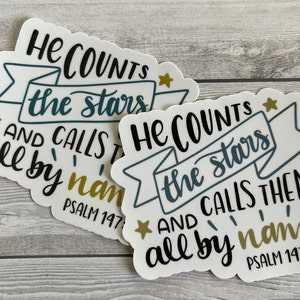 HE COUNTS
the stars
AND CALLS THE
all by nam
PSALM 147:
HE COUNTS
the stars
AND CALLS THEM
all by nam
PSALM 147